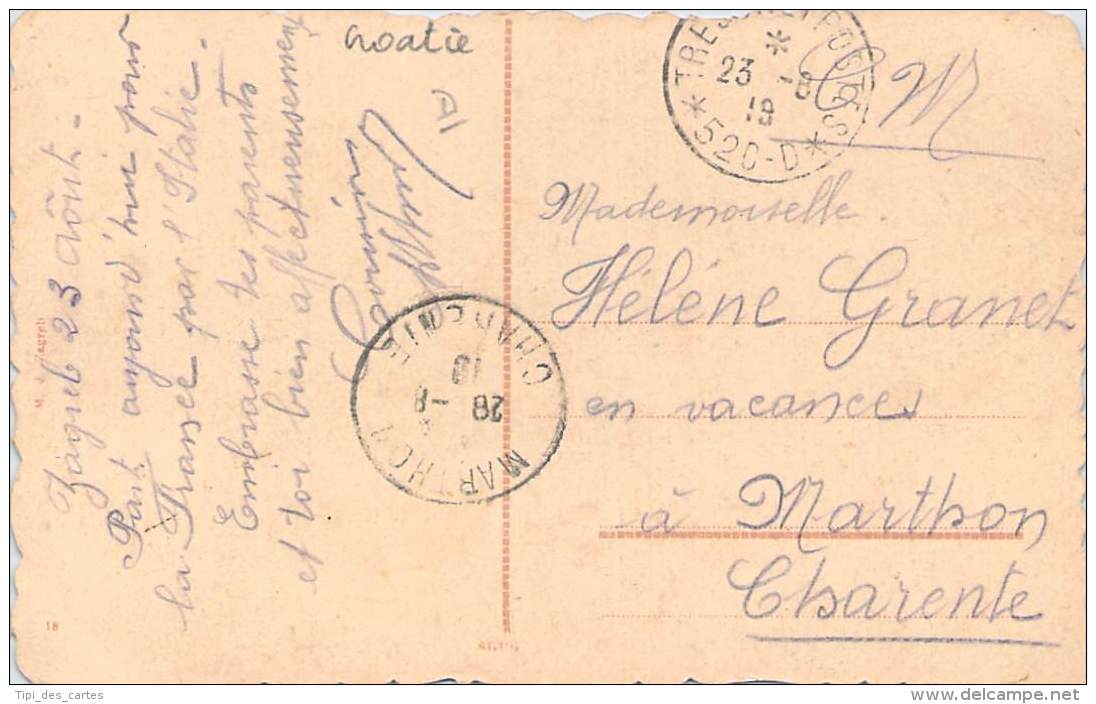 Croatie
A1
Zagreb 23 Août.
Part aujourd'hui pour
la France par l'Italie.
Embrasse tes parents
et toi bien affectueusement
TRESOR ET POSTES
23 -8
19
* 520-D *
F M
Mademoiselle
Hélène Granet
en vacances
à Marthon
Charente
MARTHON
28 -8
19
CHARENTE
18
Tipi_des_cartes
www.delcampe.net